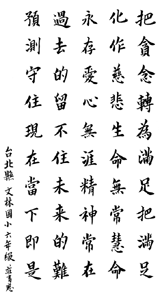 把貪念轉為滿足把滿足
化作慈悲生命無常慧命
永存愛心無涯精神常在
過去的留不住未來的難
預測守住現在當下即是
台北縣 文林國小六年級